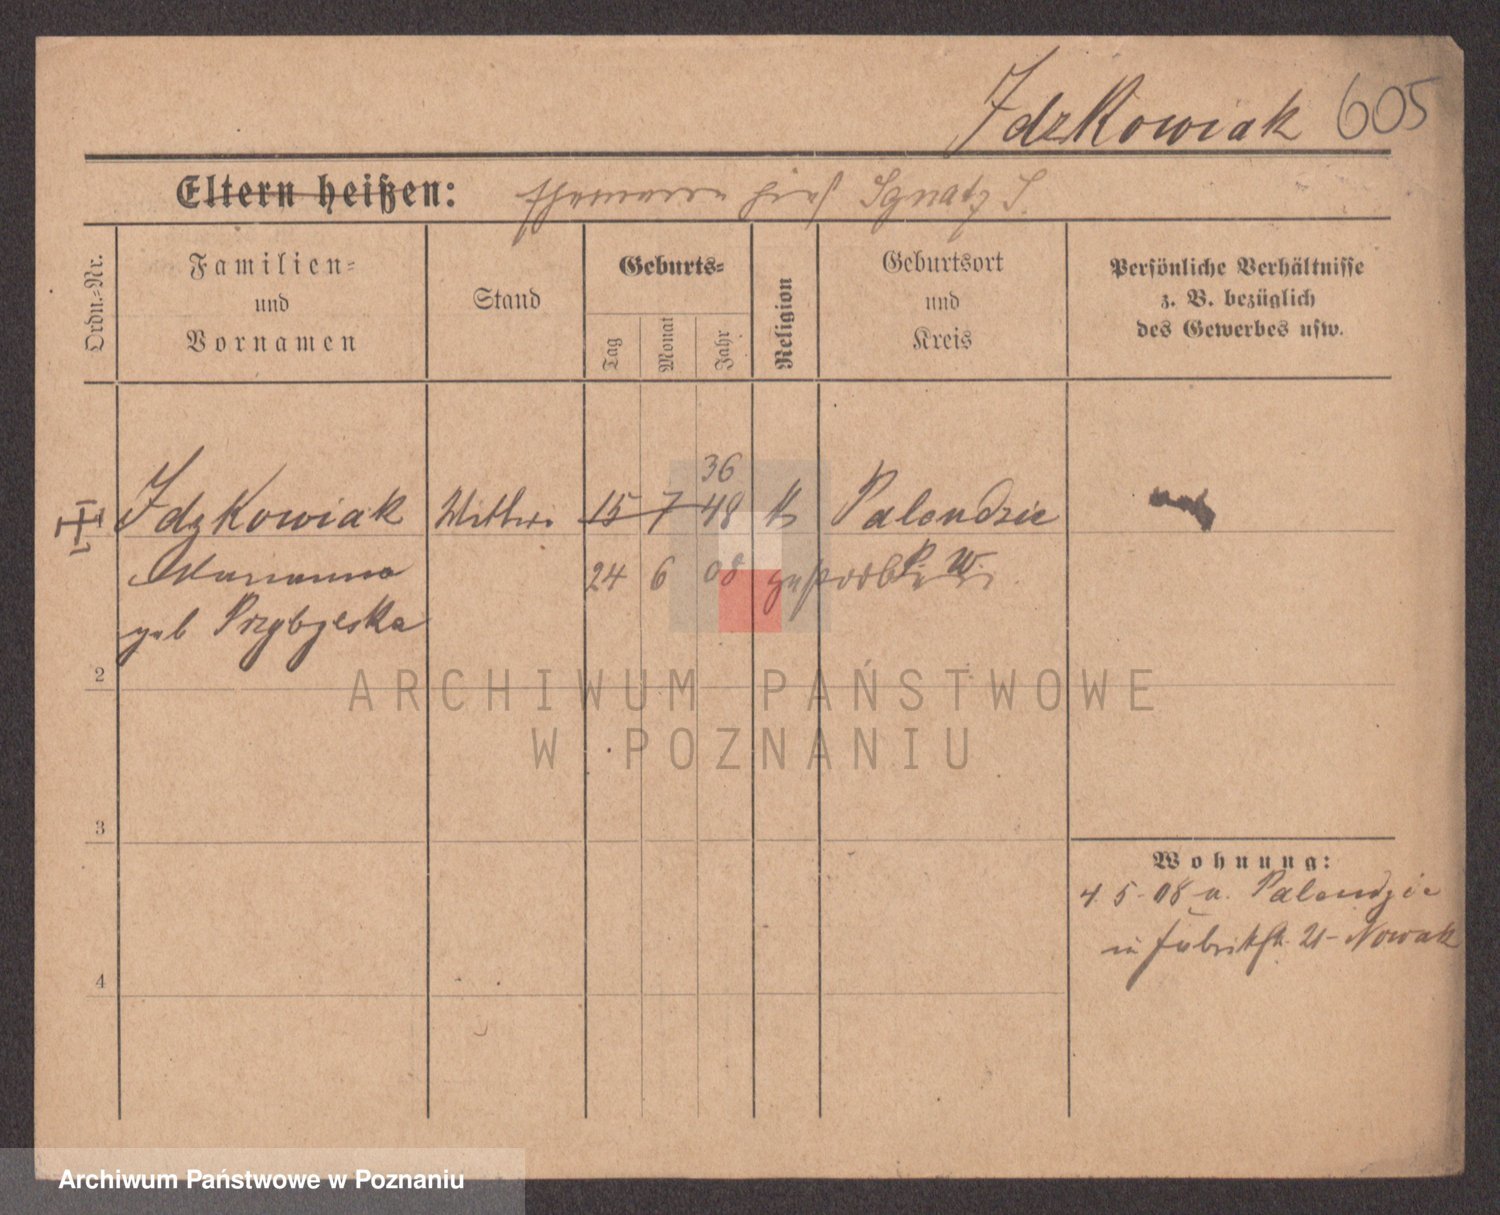 Idzkowiak 605
Eltern heißen: Ehemann hieß Ignatz I.
Ordn.-Nr.
Familien-
und
Vornamen
Stand
Geburts-
Tag
Monat
Jahr
Religion
Geburtsort
und
Kreis
Persönliche Verhältnisse
z. B. bezüglich
des Gewerbes usw.
36
Idzkowiak Wittwe 15 7 48 k Palendzie
Marianna 24 6 08 gestorben P. W.
geb Przybylska
2
3
4
Wohnung:
4. 5. 08 v. Palendzie
in Fabrikstr. 21 - Nowak
ARCHIWUM PAŃSTWOWE
W POZNANIU
Archiwum Państwowe w Poznaniu